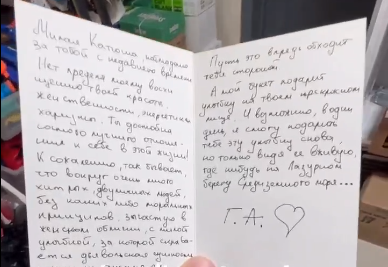 Милая Катюша, наблюдаю
за тобой с недавнего времени
Нет предела моему восхи
щению твоей красоте,
женственности, энергетики
харизме. Ты достойна
самого лучшего отноше-
ния к себе в этой жизни!
К сожалению, так бывает,
что вокруг очень много
хитрых, двуличных людей,
без каких либо моральных
принципов. Зачастую в
женском обличии, с милой
улыбкой, за которой скрыва-
ется дьявольская сущность
Пусть это впредь обходит
тебя стороной.
А мой букет подарит
улыбку на твоем прекрасном
лице. И возможно, в один
день, я смогу подарить
тебе эту улыбку снова,
но только видя ее вживую,
где нибудь на Лазурном
берегу Средиземного моря...
Г. А.